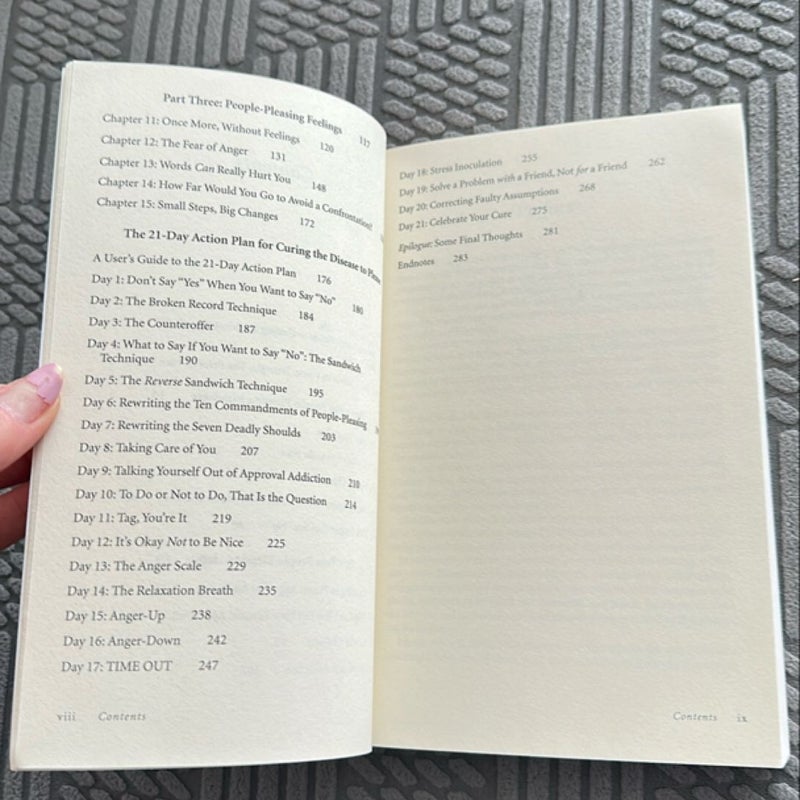 Part Three: People-Pleasing Feelings 117
Chapter 11: Once More, Without Feelings 120
Chapter 12: The Fear of Anger 131
Chapter 13: Words Can Really Hurt You 148
Chapter 14: How Far Would You Go to Avoid a Confrontation?
Chapter 15: Small Steps, Big Changes 172
The 21-Day Action Plan for Curing the Disease to Please
A User's Guide to the 21-Day Action Plan 176
Day 1: Don't Say "Yes" When You Want to Say "No" 180
Day 2: The Broken Record Technique 184
Day 3: The Counteroffer 187
Day 4: What to Say If You Want to Say "No": The Sandwich
Technique 190
Day 5: The Reverse Sandwich Technique 195
Day 6: Rewriting the Ten Commandments of People-Pleasing
Day 7: Rewriting the Seven Deadly Shoulds 203
Day 8: Taking Care of You 207
Day 9: Talking Yourself Out of Approval Addiction 210
Day 10: To Do or Not to Do, That Is the Question 214
Day 11: Tag, You're It 219
Day 12: It's Okay Not to Be Nice 225
Day 13: The Anger Scale 229
Day 14: The Relaxation Breath 235
Day 15: Anger-Up 238
Day 16: Anger-Down 242
Day 17: TIME OUT 247
viii Contents
Day 18: Stress Inoculation 255
Day 19: Solve a Problem with a Friend, Not for a Friend 262
Day 20: Correcting Faulty Assumptions 268
Day 21: Celebrate Your Cure 275
Epilogue: Some Final Thoughts 281
Endnotes 283
Contents ix